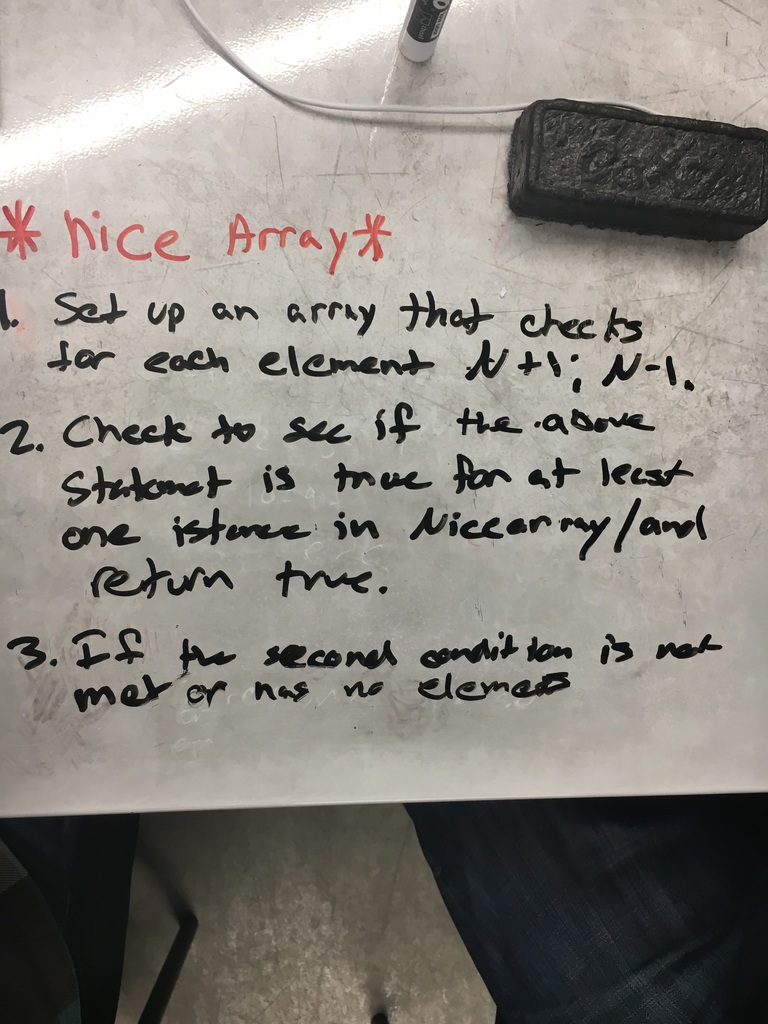 * Nice Array *
1. Set up an array that checks
for each element N+1; N-1.
2. Check to see if the above
Statemet is true for at least
one istance in Nicearray/and
return true.
3. If the second condition is not
met or has no elements